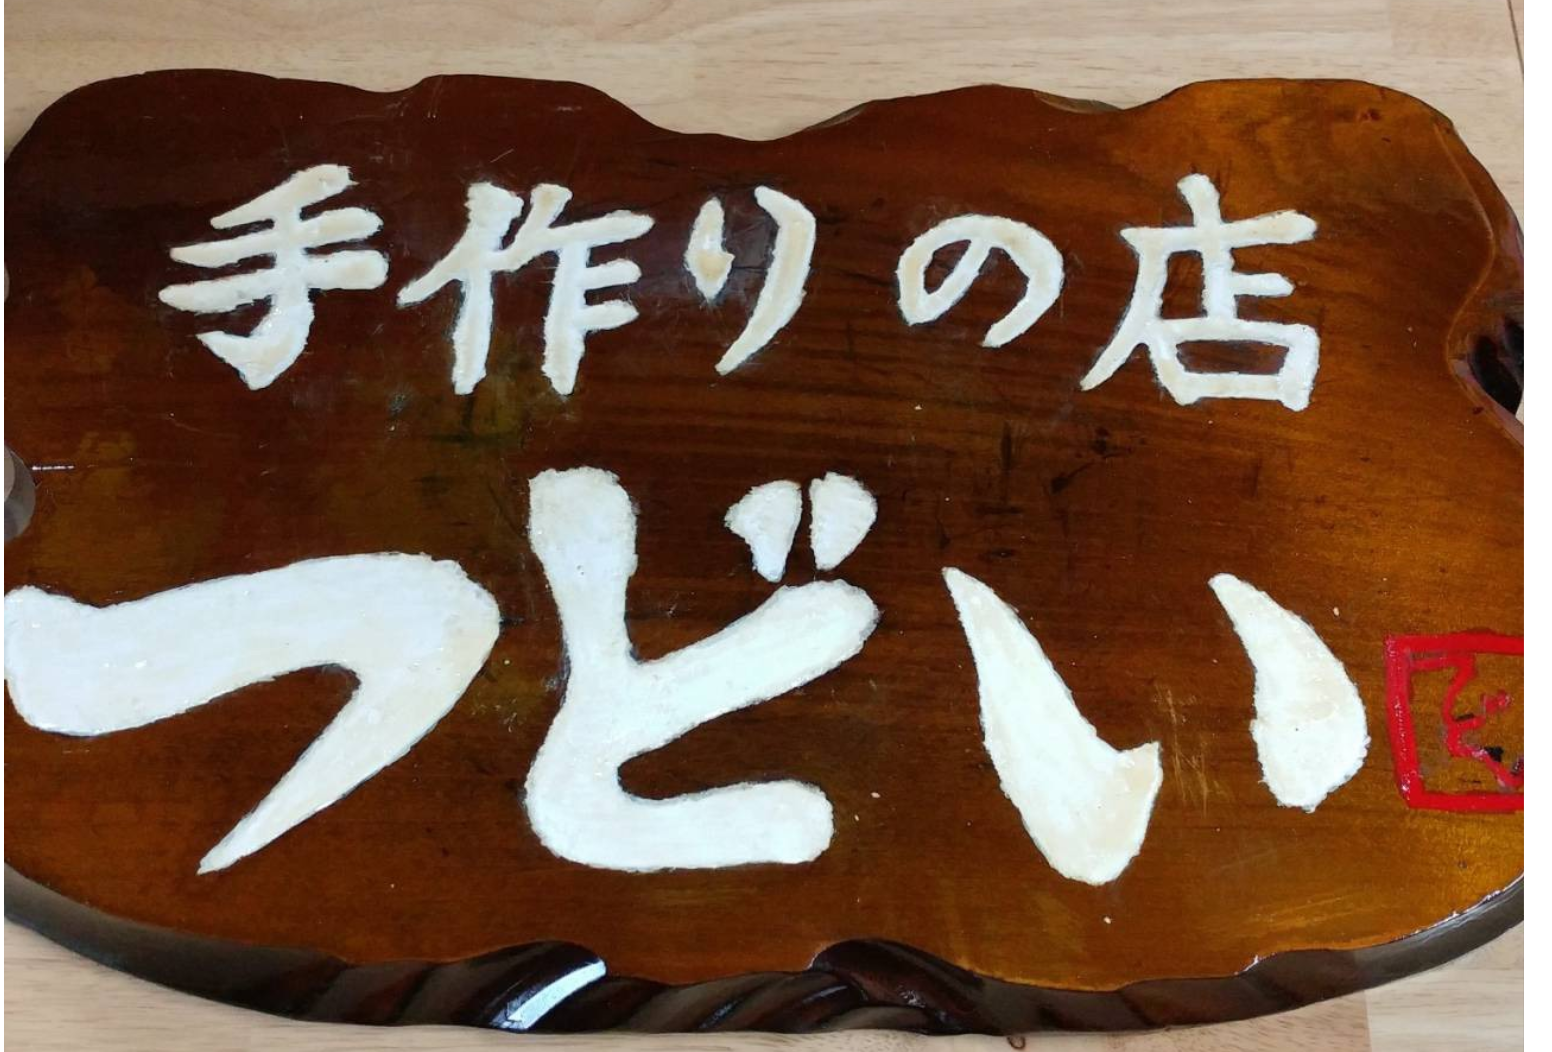 手作りの店
つどい